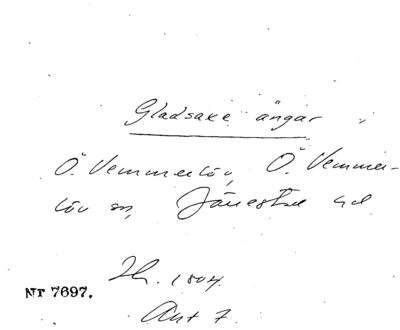 Gladsaxe ängar
Ö. Vemmerlöv, Ö. Vemmer-
löv sn, Järrestad hd
Nr 7697.
Akt 7